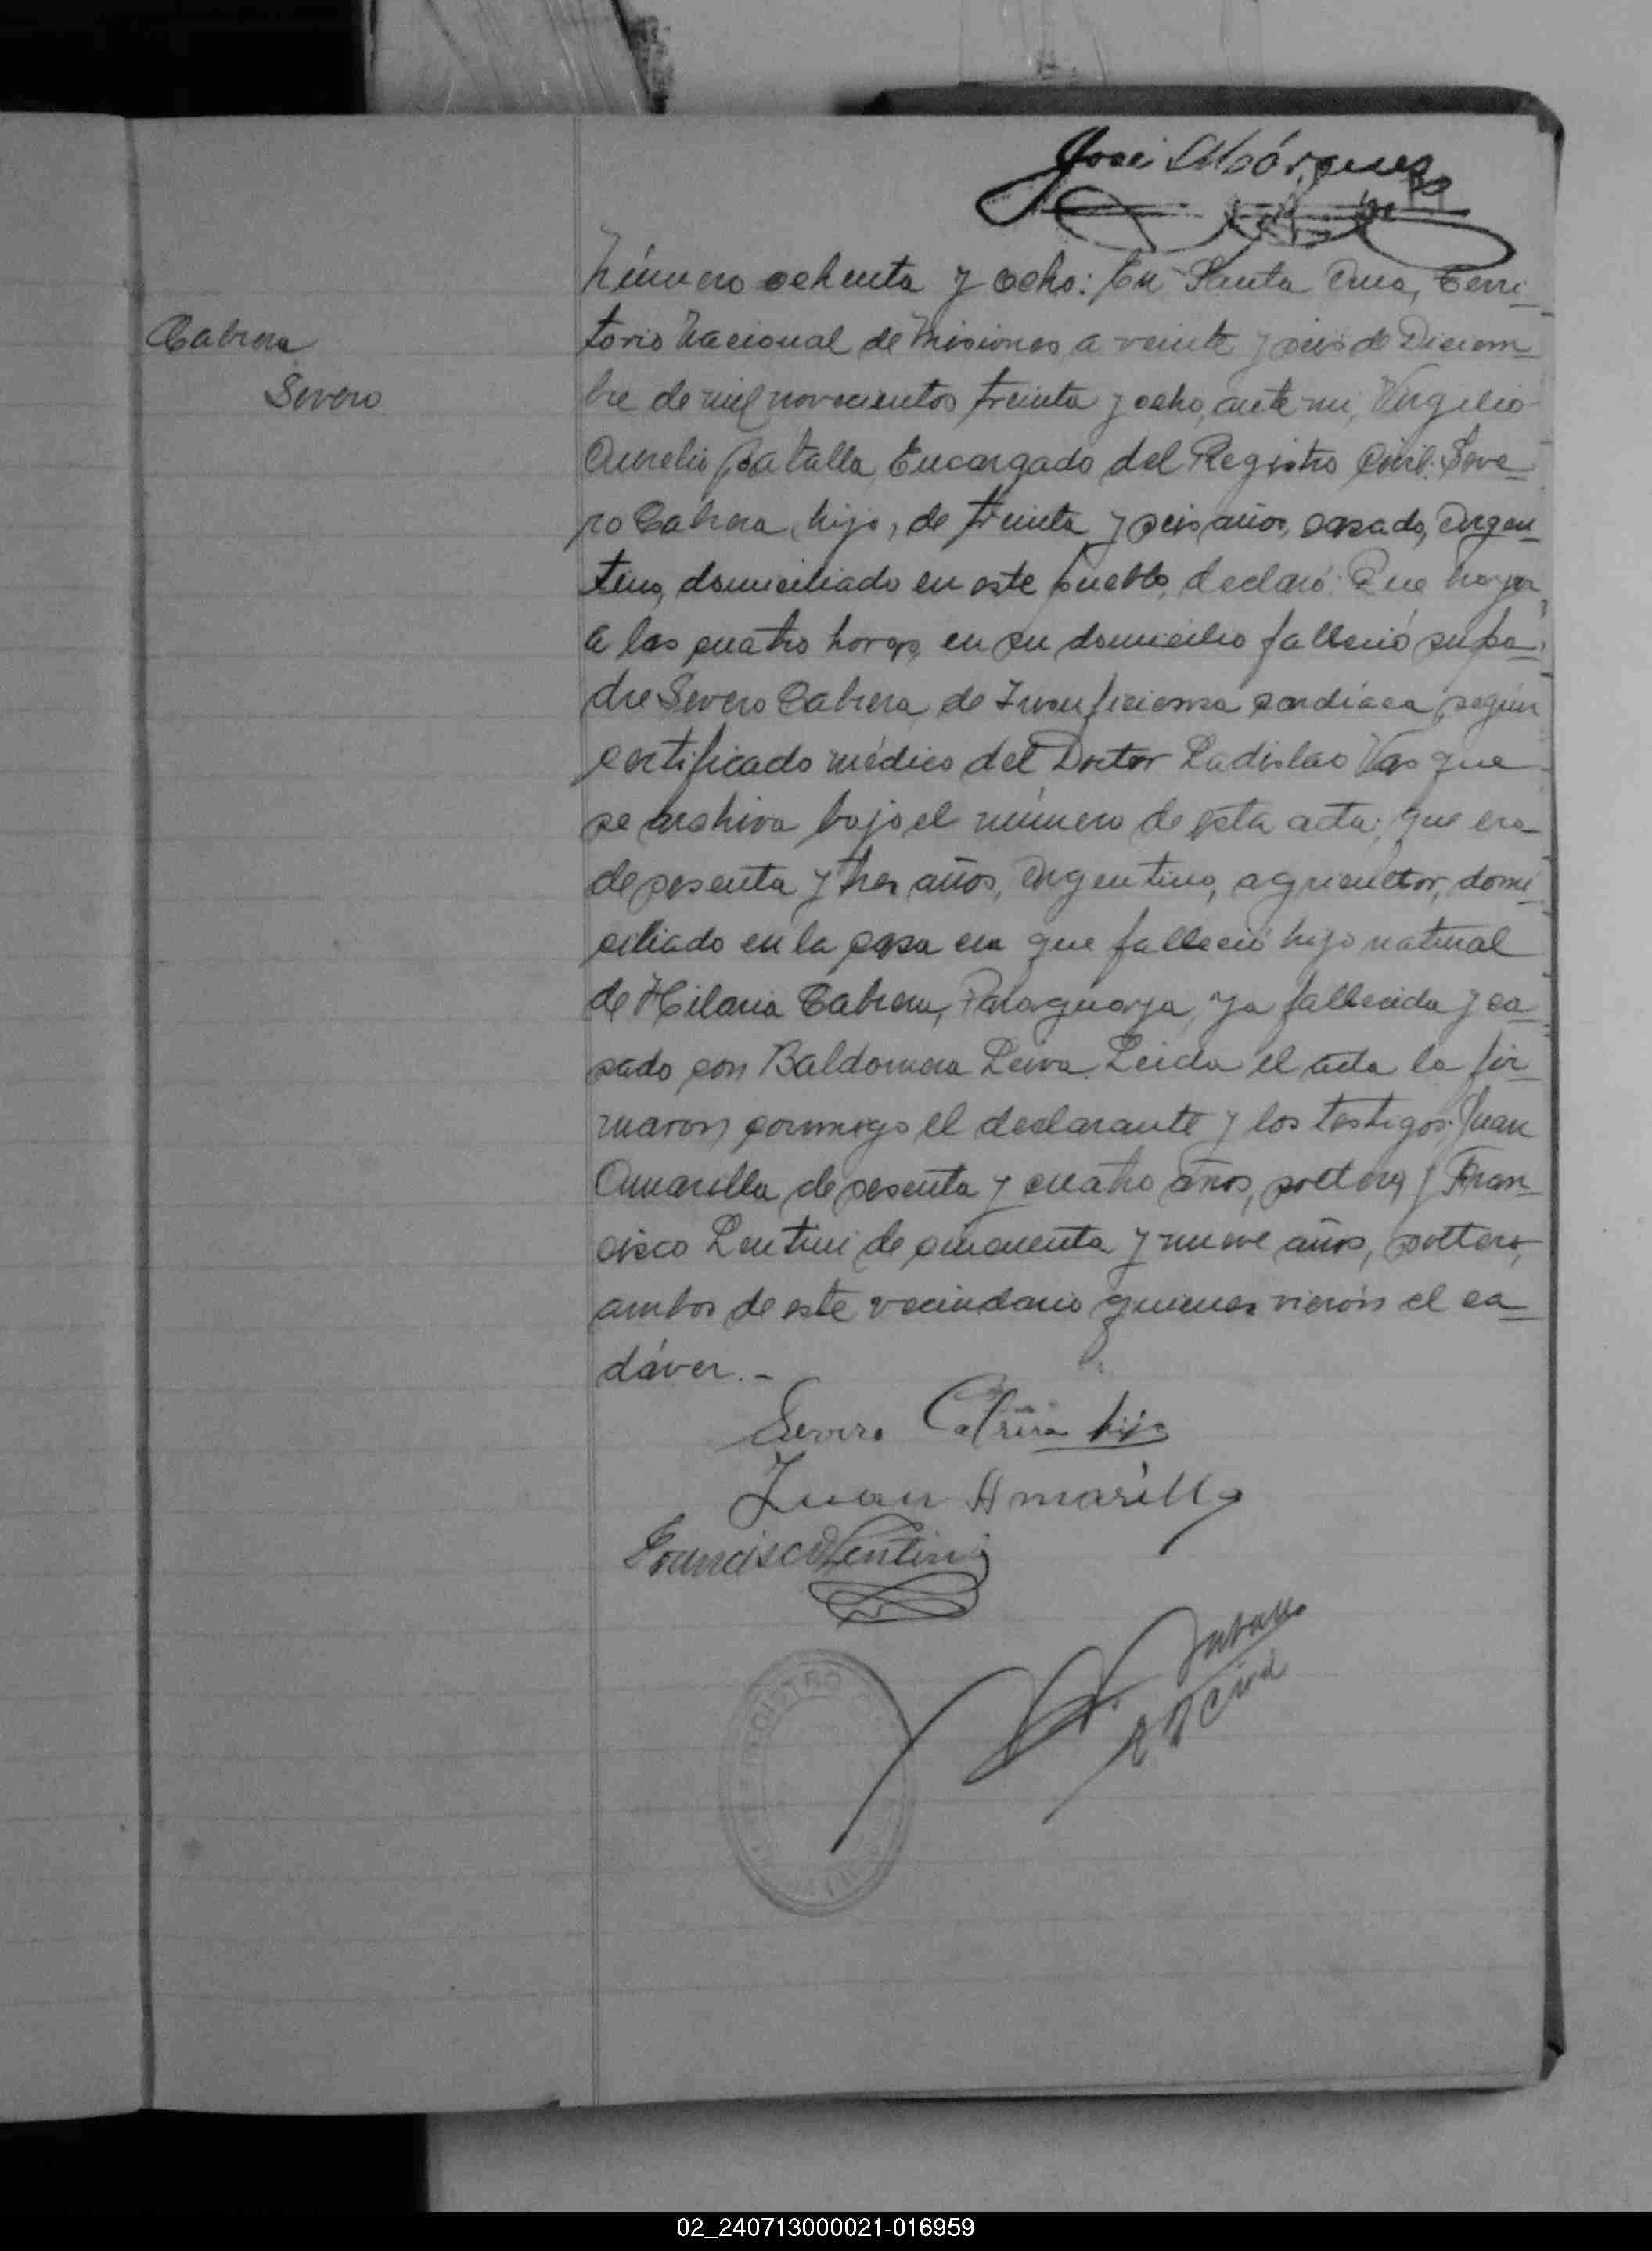 José Márquez
Cabrera
Severo
Número ochenta y ocho: En Santa Ana, Terri-
torio Nacional de Misiones, a veinte y seis de Diciem-
bre de mil novecientos treinta y ocho, ante mi, Virgilio
Aurelio Batalla, Encargado del Registro Civil: Seve-
ro Cabrera, hijo, de treinta y seis años, casado, Argen-
tino, domiciliado en este pueblo, declaró: Que hoy
a las cuatro horas, en su domicilio falleció su pa-
dre Severo Cabrera, de Insuficiensa cardíaca, según
certificado médico del Doctor Ladislao Vas que
se archiva bajo el número de esta acta; que era
de sesenta y tres años, Argentino, agricultor, domi-
ciliado en la casa en que falleció hijo natural
de Hilaria Cabrera, Paraguaya, ya fallecida y ca-
sado con Baldomera Leiva. Leida el acta la fir-
maron conmigo el declarante y los testigos: Juan
Amarilla de sesenta y cuatro años, soltero, y Fran-
cisco Lentini de cincuenta y nueve años, soltero,
ambos de este vecindario quienes vierón el ca-
dáver.-
Severo Cabrera hijo
Juan Amarilla
Francisco Lentini
REGISTRO
02_240713000021-016959